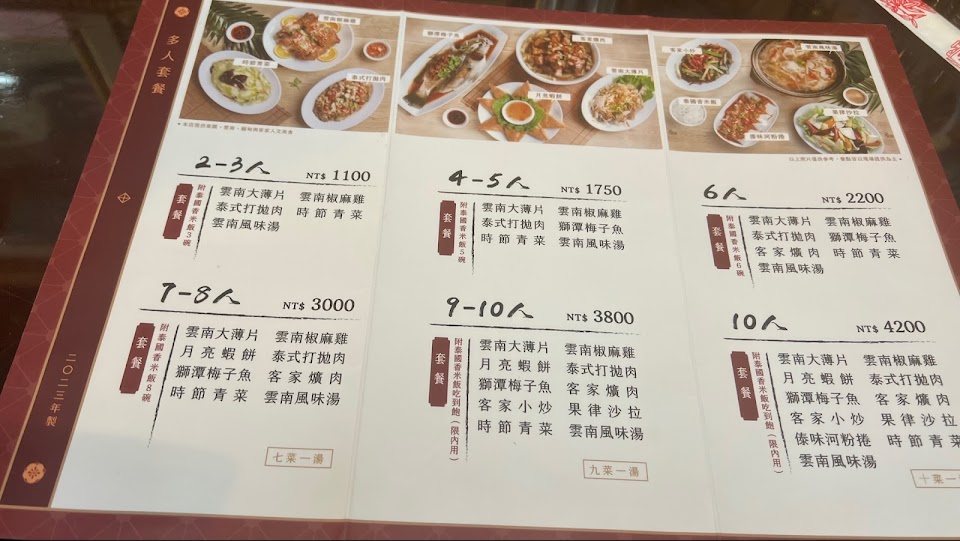 多人套餐
二〇二三年製
雲南椒麻雞
時節青菜
泰式打拋肉
獅潭梅子魚
客家爌肉
雲南大薄片
月亮蝦餅
客家小炒
雲南風味湯
泰國香米飯
傣味河粉捲
果律沙拉
以上照片僅供參考，餐點皆以現場提供為主
2-3人 NT$ 1100
套餐
附泰國香米飯3碗
雲南大薄片 雲南椒麻雞
泰式打拋肉 時節青菜
雲南風味湯
4-5人 NT$ 1750
套餐
附泰國香米飯5碗
雲南大薄片 雲南椒麻雞
泰式打拋肉 獅潭梅子魚
時節青菜 雲南風味湯
6人 NT$ 2200
套餐
附泰國香米飯6碗
雲南大薄片 雲南椒麻雞
泰式打拋肉 獅潭梅子魚
客家爌肉 時節青菜
雲南風味湯
7-8人 NT$ 3000
套餐
附泰國香米飯8碗
雲南大薄片 雲南椒麻雞
月亮蝦餅 泰式打拋肉
獅潭梅子魚 客家爌肉
時節青菜 雲南風味湯
七菜一湯
9-10人 NT$ 3800
套餐
附泰國香米飯吃到飽(限內用)
雲南大薄片 雲南椒麻雞
月亮蝦餅 泰式打拋肉
獅潭梅子魚 客家爌肉
客家小炒 果律沙拉
時節青菜 雲南風味湯
九菜一湯
10人 NT$ 4200
套餐
附泰國香米飯吃到飽(限內用)
雲南大薄片 雲南椒麻雞
月亮蝦餅 泰式打拋肉
獅潭梅子魚 客家爌肉
客家小炒 果律沙拉
傣味河粉捲 時節青菜
雲南風味湯
十菜一